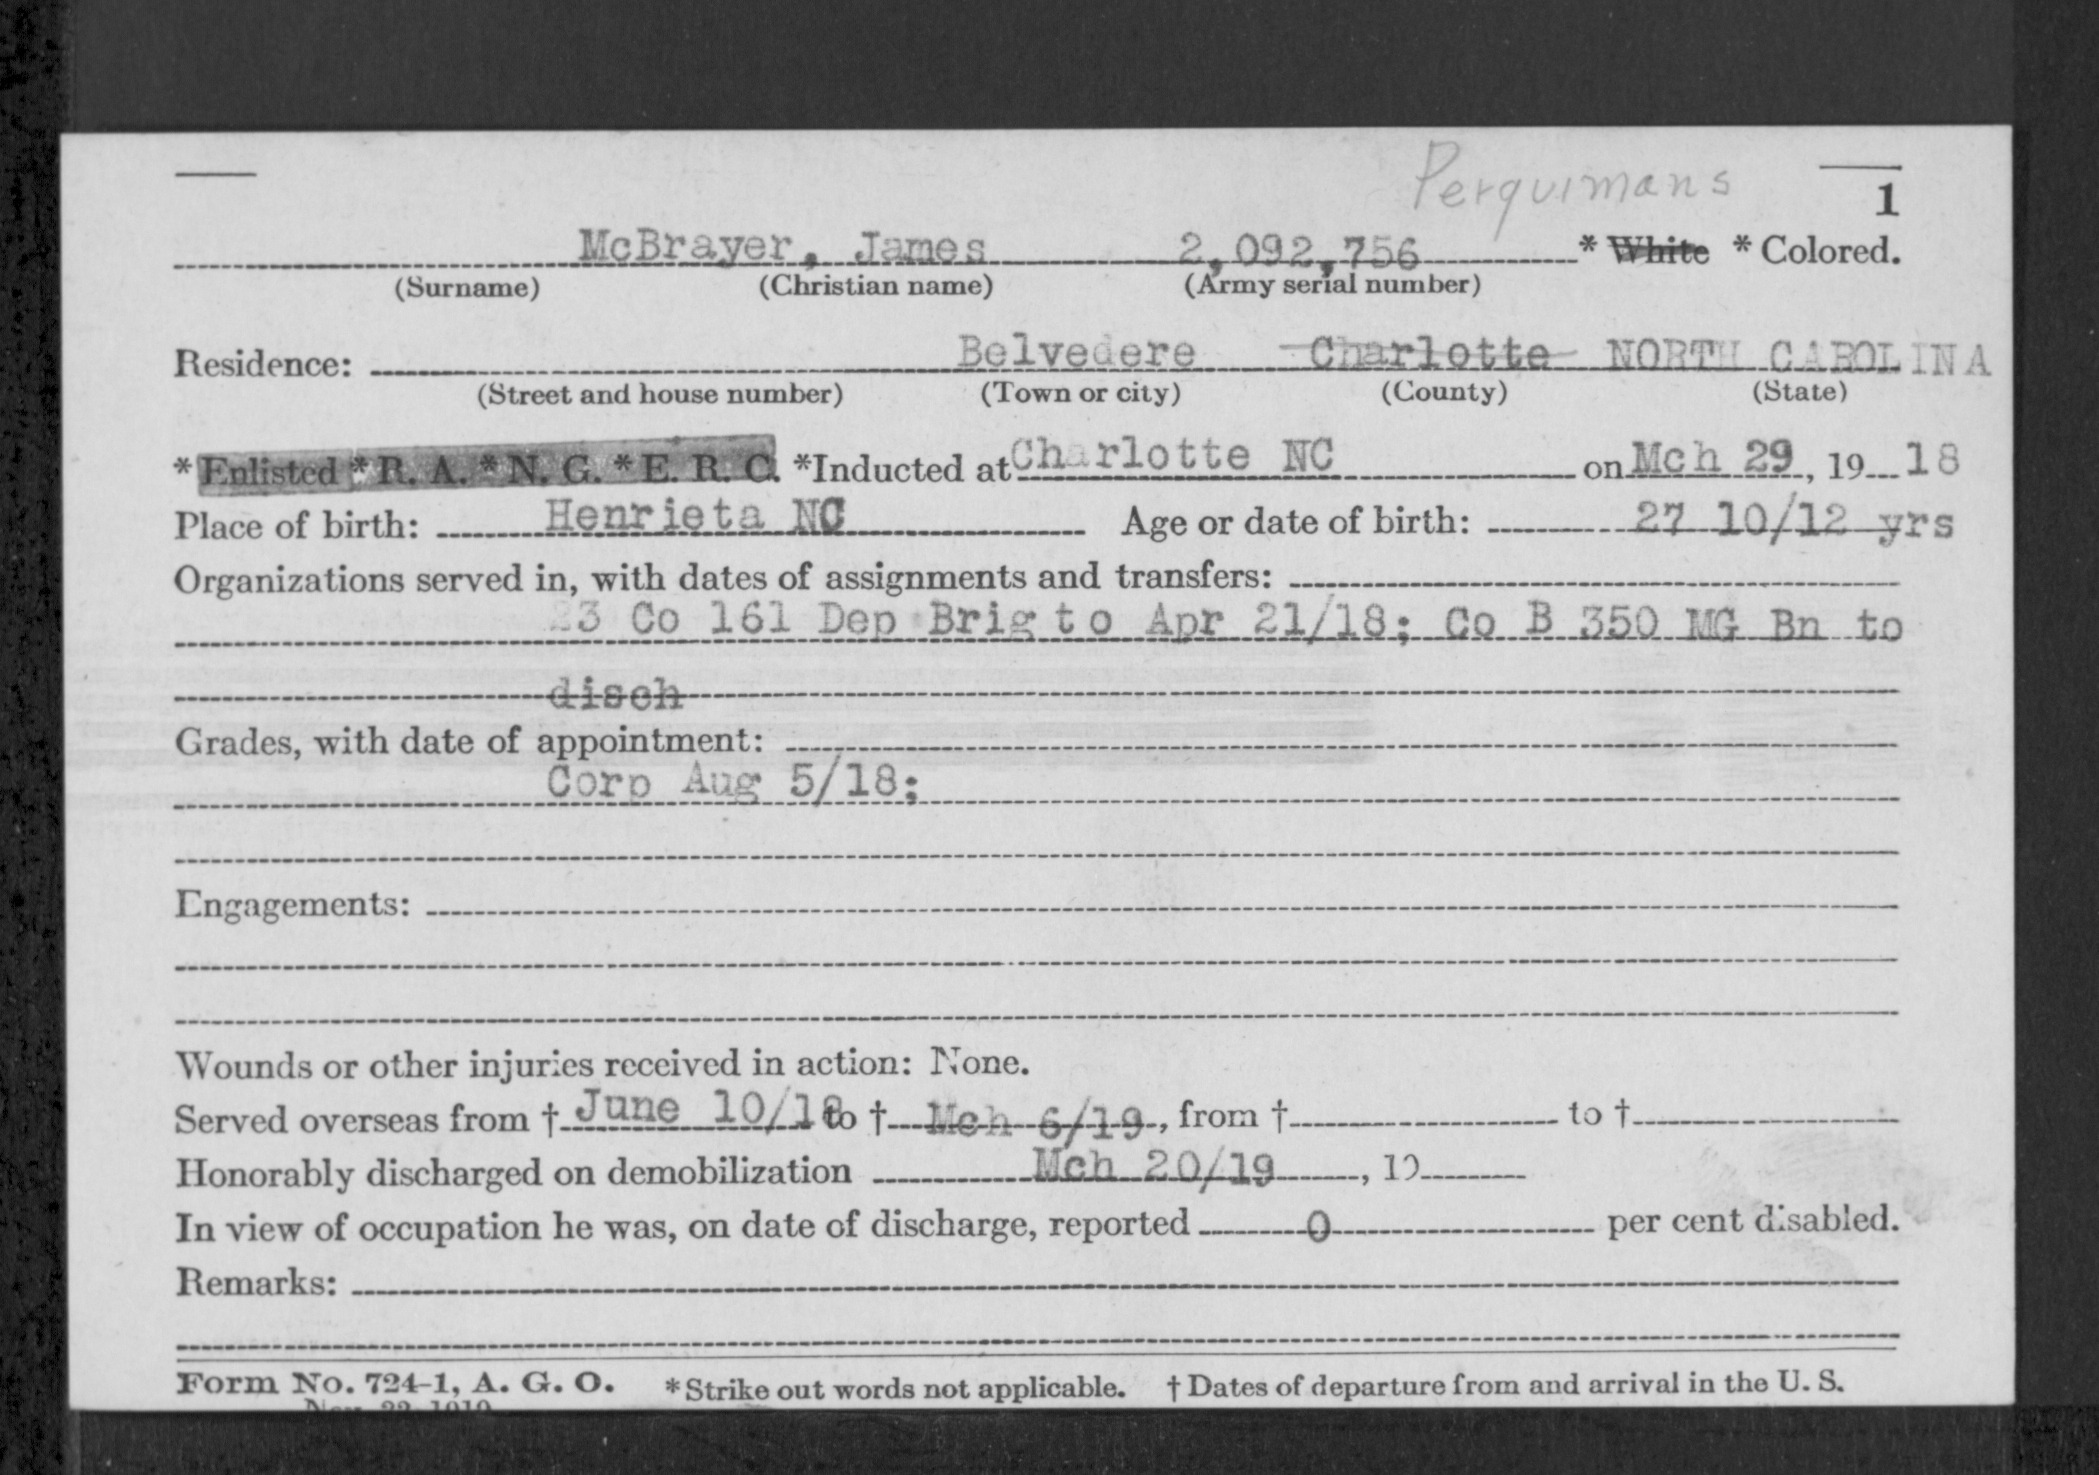 Perquimans
1
McBrayer, James 2,092,756 * White * Colored.
(Surname) (Christian name) (Army serial number)
Residence: Belvedere Charlotte NORTH CAROLINA
(Street and house number) (Town or city) (County) (State)
*Enlisted *R. A. *N. G. *E. R. C. *Inducted at Charlotte NC on Mch 29, 19 18
Place of birth: Henrieta NC Age or date of birth: 27 10/12 yrs
Organizations served in, with dates of assignments and transfers:
23 Co 161 Dep Brig to Apr 21/18; Co B 350 MG Bn to
disch
Grades, with date of appointment:
Corp Aug 5/18;
Engagements:
Wounds or other injuries received in action: None.
Served overseas from † June 10/18 to † Mch 6/19, from † to †
Honorably discharged on demobilization Mch 20/19, 19
In view of occupation he was, on date of discharge, reported 0 per cent disabled.
Remarks:
Form No. 724-1, A. G. O. *Strike out words not applicable. † Dates of departure from and arrival in the U. S.
Nov. 22, 1919